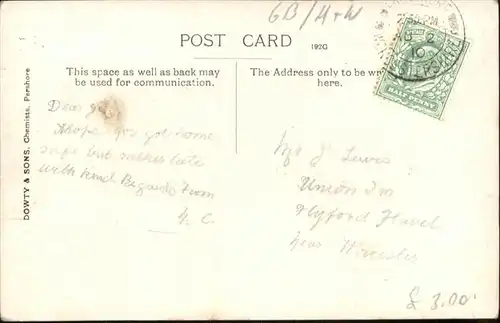 GB/H+W
POST CARD
192G
This space as well as back may
be used for communication.
The Address only to be
here.
HALFPENNY
DOWTY & SONS, Chemists, Pershore
Dear
I hope you got home
safe but rather late
with kind Regards From
Mr J Lewis
Union Inn
Flyford Flavel
Near Worcester
£ 3.00